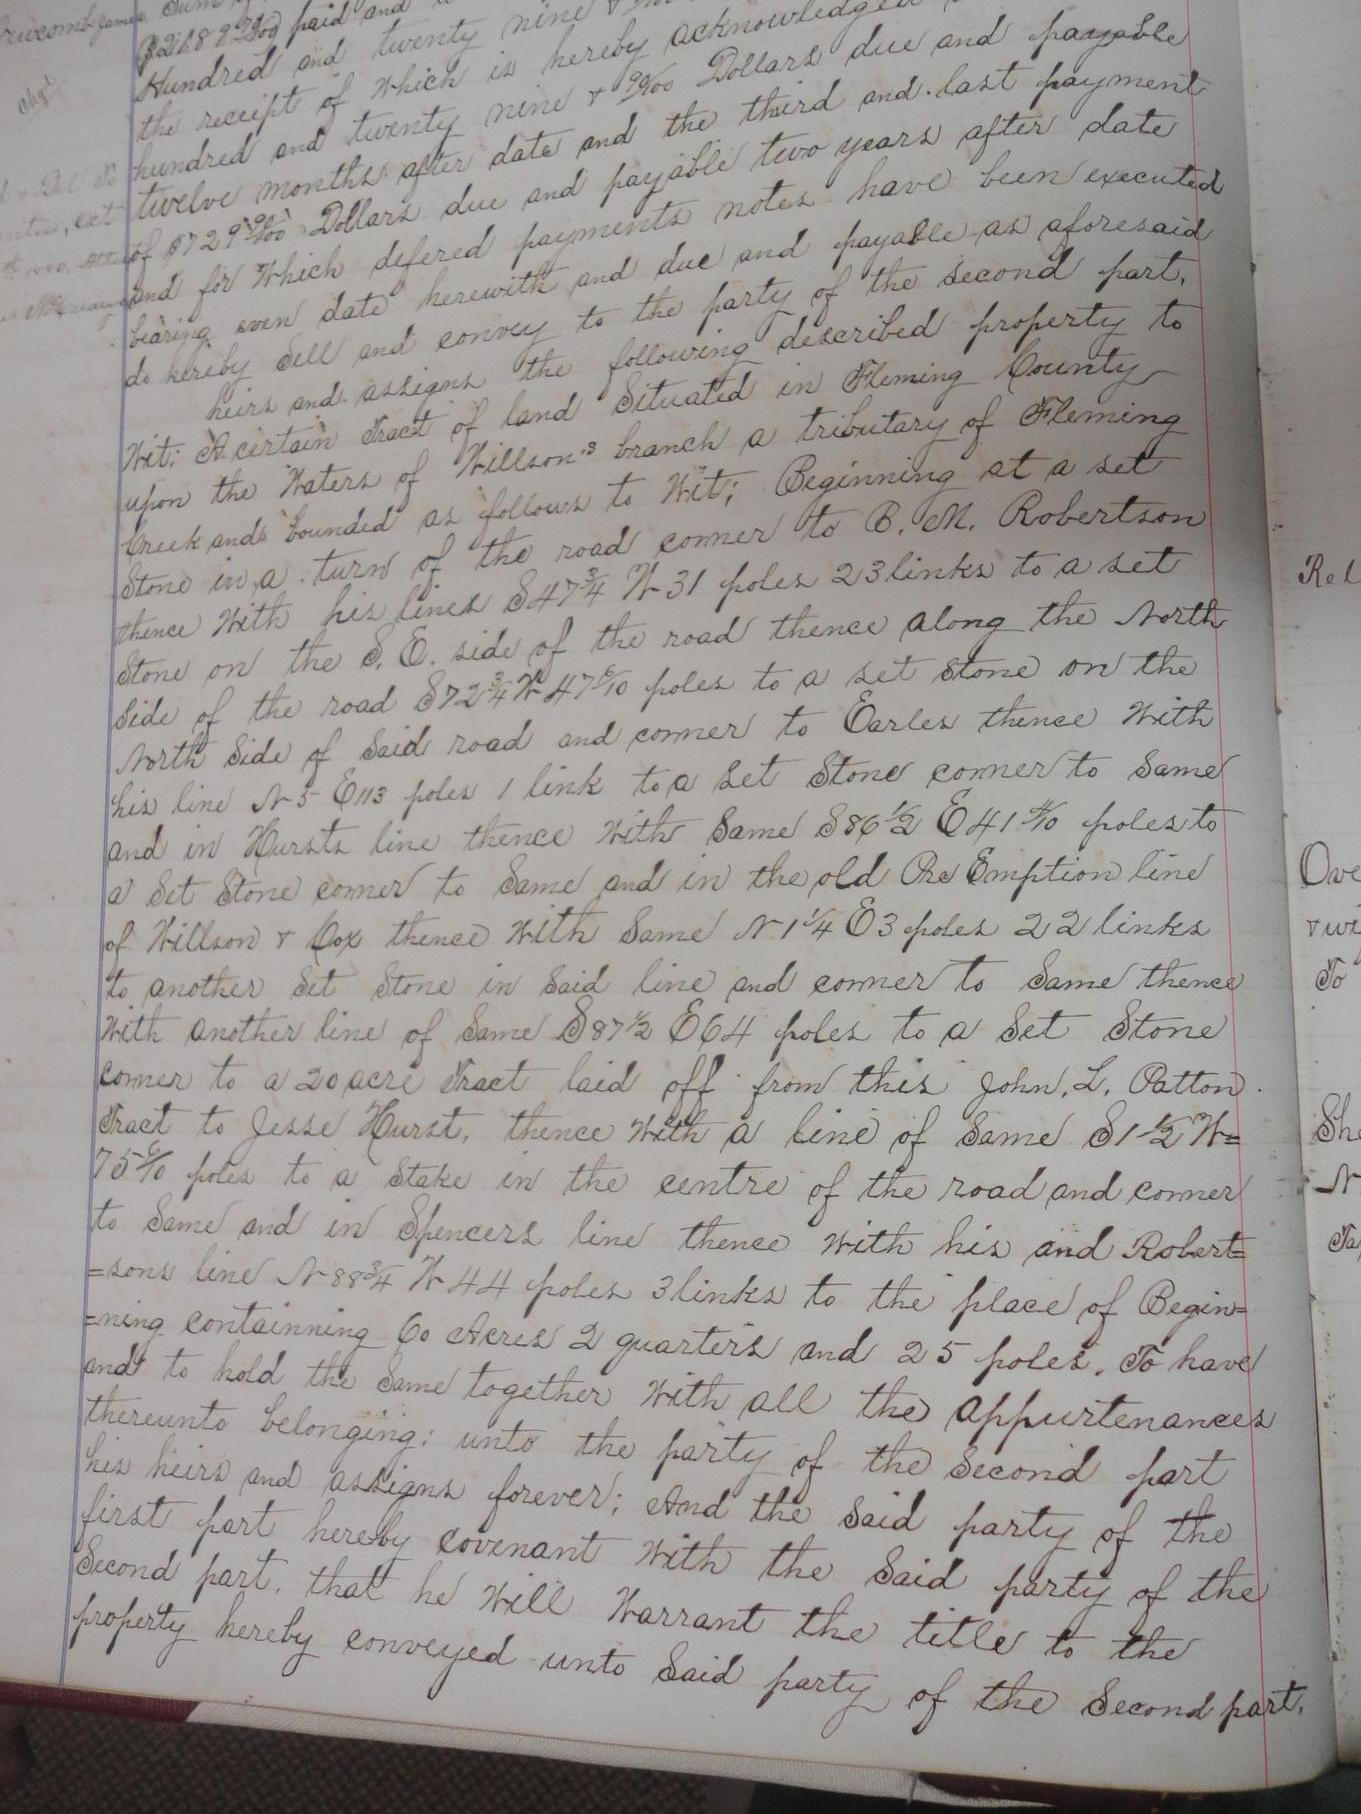 $2189 90/100 paid and
Hundred and twenty nine &
the receipt of Which is hereby acknowledged
hundred and twenty nine & 90/100 Dollars due and payable
twelve months after date and the third and last payment
of $729 90/100 Dollars due and payable two years after date
and for Which defered payments notes have been executed
bearing even date herewith and due and payable as aforesaid
do hereby Sell and convey to the party of the second part,
heirs and assigns the following described property to
Wit: A certain Tract of land Situated in Fleming County
upon the Waters of Willson's branch a tributary of Fleming
Creek and bounded as follows to Wit; Beginning at a set
Stone in a turn of the road corner to B. M. Robertson
thence With his lines S 47 3/4 W 31 poles 23 links to a set
Stone on the S. E. side of the road thence along the North
Side of the road S 72 3/4 W 47 6/10 poles to a set stone on the
North Side of Said road and corner to Earles thence With
his line N 5 E 113 poles 1 link to a Set Stone corner to Same
and in Hursts line thence With Same S 86 1/2 E 41 4/10 poles to
a Set Stone corner to Same and in the old Pre Emption line
of Willson & Cox thence With Same N 1 1/4 E 3 poles 22 links
to another Set Stone in Said line and corner to Same thence
With another line of Same S 87 1/2 E 64 poles to a Set Stone
corner to a 20 acre Tract laid off from this John. L. Patton
Tract to Jesse Hurst, thence With a line of Same S 1 1/2 W=
75 6/10 poles to a Stake in the centre of the road and corner
to Same and in Spencers line thence With his and Robert=
=sons line N 88 3/4 W 44 poles 3 links to the place of Begin=
=ning containning 60 Acres 2 quarters and 25 poles. To have
and to hold the Same together With all the appurtenances
thereunto belonging: unto the party of the Second part
his heirs and assigns forever; And the Said party of the
first part hereby covenant With the Said party of the
Second part, that he Will Warrant the title to the
property hereby conveyed unto Said party of the Second part.
Rel
Ove
& wi
To
She
N